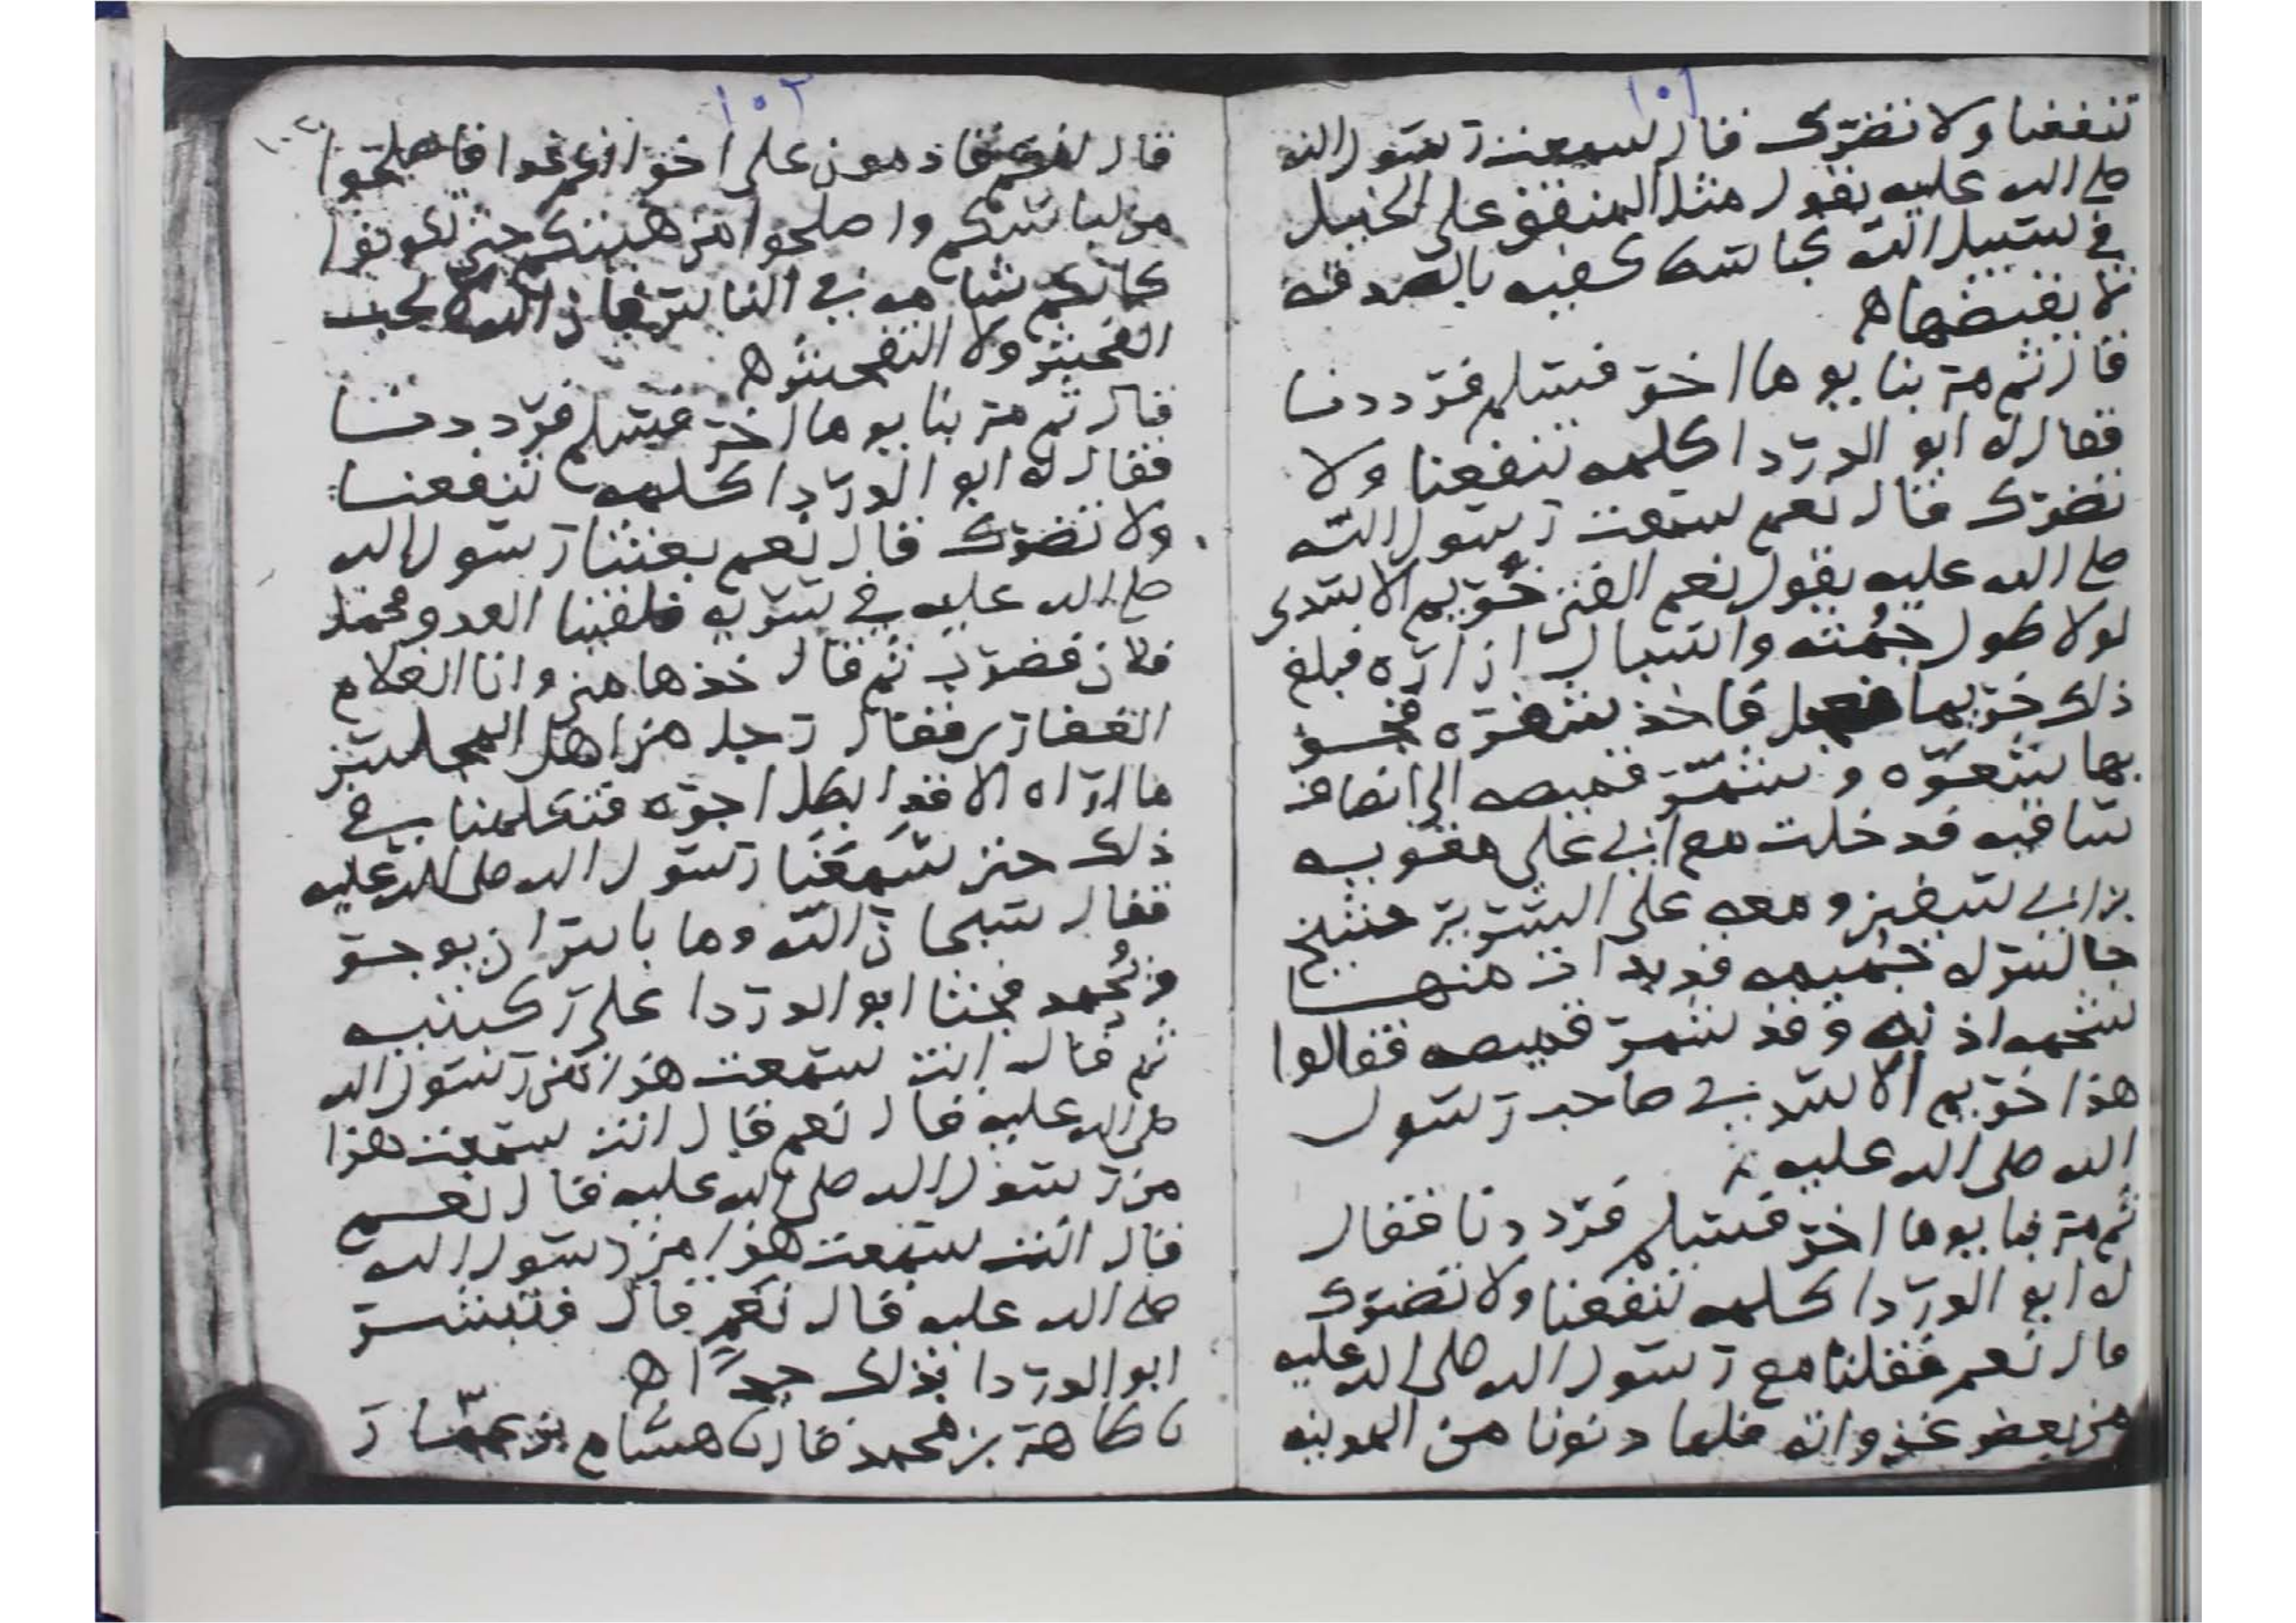 ١٠١
تنفعنا ولا تضرك قال سمعت رسول الله
صلى الله عليه يقول مثل المنفق على الخيل
في سبيل الله كباسط كفيه بالصدقة
لا يقبضها ه
قال ثم مر بنا يوما اخر فسلم فرددنا
فقال له ابو الدردا كلمه تنفعنا ولا
تضرك قال نعم سمعت رسول الله
صلى الله عليه يقول نعم الفتى خريم الاسدى
لولا طول جمته واسبال ازاره فبلغ
ذلك خريما فعجل فاخذ شفره فحسو
بها شعره و شمر قميصه الى انصاف
ساقيه فدخلت مع ابي على معويه
بن ابي سفين و معه على السرير شيخ
جالس له جميمه قد بدات منها
شحمه اذنه وقد شمر قميصه فقالوا
هذا خريم الاسدي صاحب رسول
الله صلى الله عليه
ثم مر بنا يوما اخر فسلم فرددنا فقال
له ابو الدردا كلمه تنفعنا ولا تضرك
قال نعم قفلنا مع رسول الله صلى الله عليه
من بعض غزواته فلما دنونا من المدينه
١٠٢
قال لنا انكم قادمون على اخوانكم غدا فاصلحوا
من لباسكم واصلحوا من هيتكم حتى تكونوا
كانكم شامه في الناس فان الله لا يحب
الفحش ولا التفحش ه
قال ثم مر بنا يوما اخر فسلم فرددنا
فقال له ابو الدردا كلمه تنفعنا
ولا تضرك قال نعم بعثنا رسول الله
صلى الله عليه في سريه فلقينا العدو فحمل
فلان فضرب ثم قال خذها مني وانا الغلام
الغفاري فقال رجل من اهل المجلس
ما اراه الا قد ابطل اجره فتكلمنا في
ذلك حتى سمعنا رسول الله صلى الله عليه
فقال سبحان الله وما باس ان يوجر
ويحمد فجثا ابو الدردا على ركبتيه
ثم قال انت سمعت هذا من رسول الله
صلى الله عليه قال نعم قال انت سمعت هذا
من رسول الله صلى الله عليه قال نعم
قال انت سمعت هذا من رسول الله
صلى الله عليه قال نعم قال فتبشر
ابو الدردا بذلك جدا ه
نا طاهر بن محمد قال نا هشام بن عمار